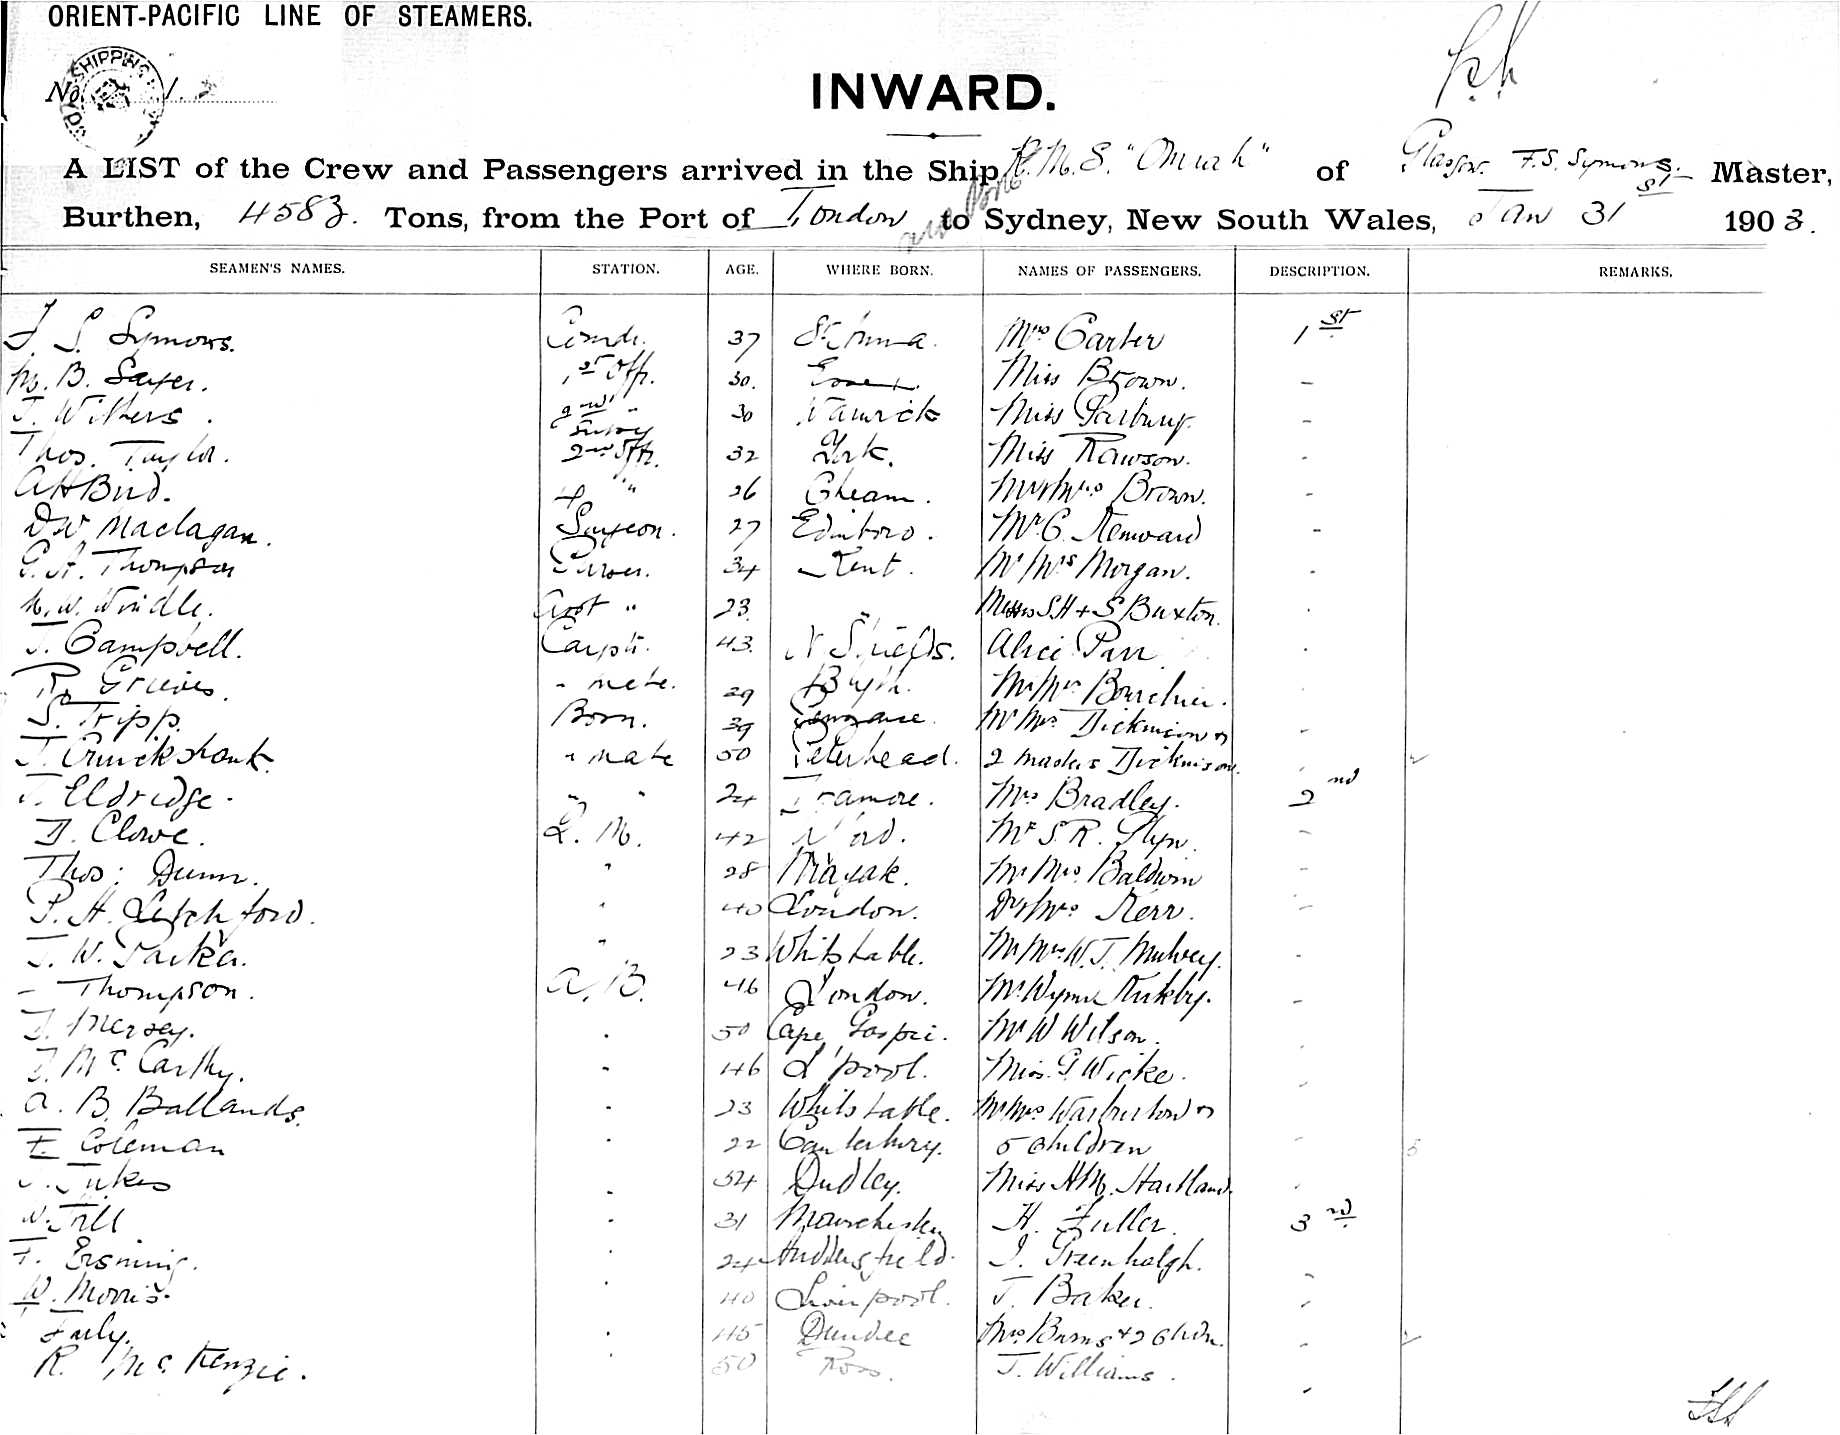 ORIENT-PACIFIC LINE OF STEAMERS.
SHIPPING
No. 1.
INWARD.
A LIST of the Crew and Passengers arrived in the Ship R.M.S. "Omrah" of Glasgow. F.S. Symons. Master,
Burthen, 4583. Tons, from the Port of London to Sydney, New South Wales, Jan 31st 1903.
SEAMEN'S NAMES. STATION. AGE. WHERE BORN. NAMES OF PASSENGERS. DESCRIPTION. REMARKS.
F. S. Symons. Comdr. 37 Mrs Carter 1st
B. Sayer. 1st Offr. 30. Miss Brown. -
J. Withers. 2nd " 30 Warwick Miss Parbury. -
Thos. Taylor. 2nd Offr. 32 York. Miss Rawson. -
A H Bird. 4 " 26 Cheam. Mr & Mrs Brown. -
D W Maclagan. Surgeon. 27 Edinboro. Mr C. Kenward -
G. A. Thompson Purser. 34 Kent. Mr Mrs Morgan. -
W. Windle. Asst " 23. Messrs S H + S Buxton. -
J. Campbell. Carptr. 43. N Shields. Alice Parr -
R. Grieves. " mate. 29 Blyth. Mr Mrs Bourchier. -
S. Tripp. Bosn. 39 Penzance. Mr Mrs Dickinson & -
J. Cruickshank. " mate 50 Peterhead. 2 masters Dickinson. -
J. Eldridge. " " 24 Tramore. Mrs Bradley. 2nd
D. Clowe. L. M. 42 Mr S. R. Flyn. -
Thos: Dunn. " 28 Mr Mrs Baldwin -
P. H. Letchford. " 40 London. Dr & Mrs Kerr. -
J. W. Parker. " 23 Whitstable. Mr Mrs W. J. Mulvey.
- Thompson. A. B. 46 London. Mr Wynn Kirkby. -
J. Mersey. " 50 Cape Mr W Wilson. -
J. McCarthy. " 46 L'pool. Miss G. Wicke. -
A. B. Ballands. " 23 Whitstable. Mr Mrs Warburton & -
F. Coleman " 22 Canterbury. 5 children - 5
J. Jukes " 34 Dudley. Miss H. M. Hartland. -
W. Till " 31 Manchester H. Fuller. 3rd
F. " 24 Huddersfield. J. Greenhalgh.
W. Morris. " 40 Liverpool. J. Baker. -
July. " 45 Dundee Mrs Burns + 2 Chdn. - 2
R. McKenzie. " 50 Ross. J. Williams. -